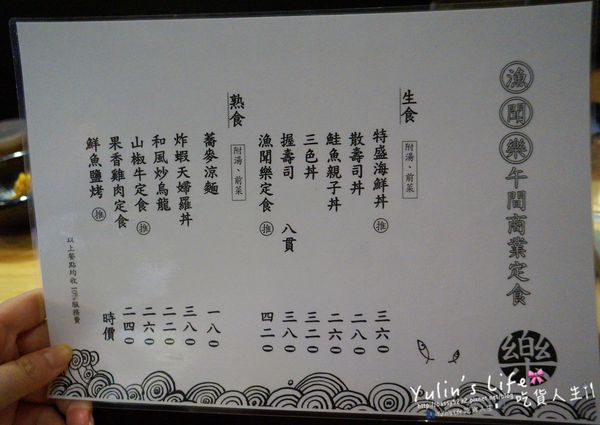 漁聞樂午間商業定食
樂
生食
附湯、前菜
特盛海鮮丼 推 三六〇
散壽司丼 二八〇
鮭魚親子丼 二六〇
三色丼 三二〇
握壽司 八貫 三八〇
漁聞樂定食 推 四二〇
熟食
附湯、前菜
蕎麥涼麵 一八〇
炸蝦天婦羅丼 三八〇
和風炒烏龍 二二〇
山椒牛定食 推 二六〇
果香雞肉定食 二四〇
鮮魚鹽烤 推 時價
以上餐點均收10%服務費
Yulin's Life 吃貨人生!!